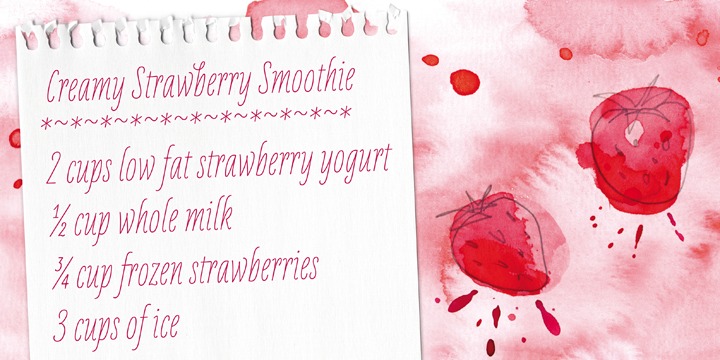 Creamy Strawberry Smoothie
*~*~*~*~*~*~*~*~*~*~*
2 cups low fat strawberry yogurt
½ cup whole milk
¾ cup frozen strawberries
3 cups of ice